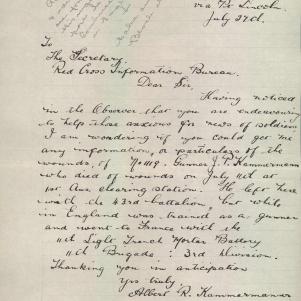 via Pt Lincoln.
July 27th.
To
The Secretary,
Red Cross Information Bureau.
Dear Sir,
Having noticed
in the Observer that you are endeavouring
to help those anxious for news of soldiers
I am wondering if you could get me
any information, or particulars of the
wounds, of No 1119. Gunner J. P. Kammermann
who died of wounds on July 11th at
1st Aus clearing station. He left here
with the 43rd battalion, but while
in England was trained as a gunner
and went to France with the
11th Light Trench Mortar Battery
11th Brigade: 3rd Division.
Thanking you in anticipation
Yrs truly.
Albert R. Kammermann